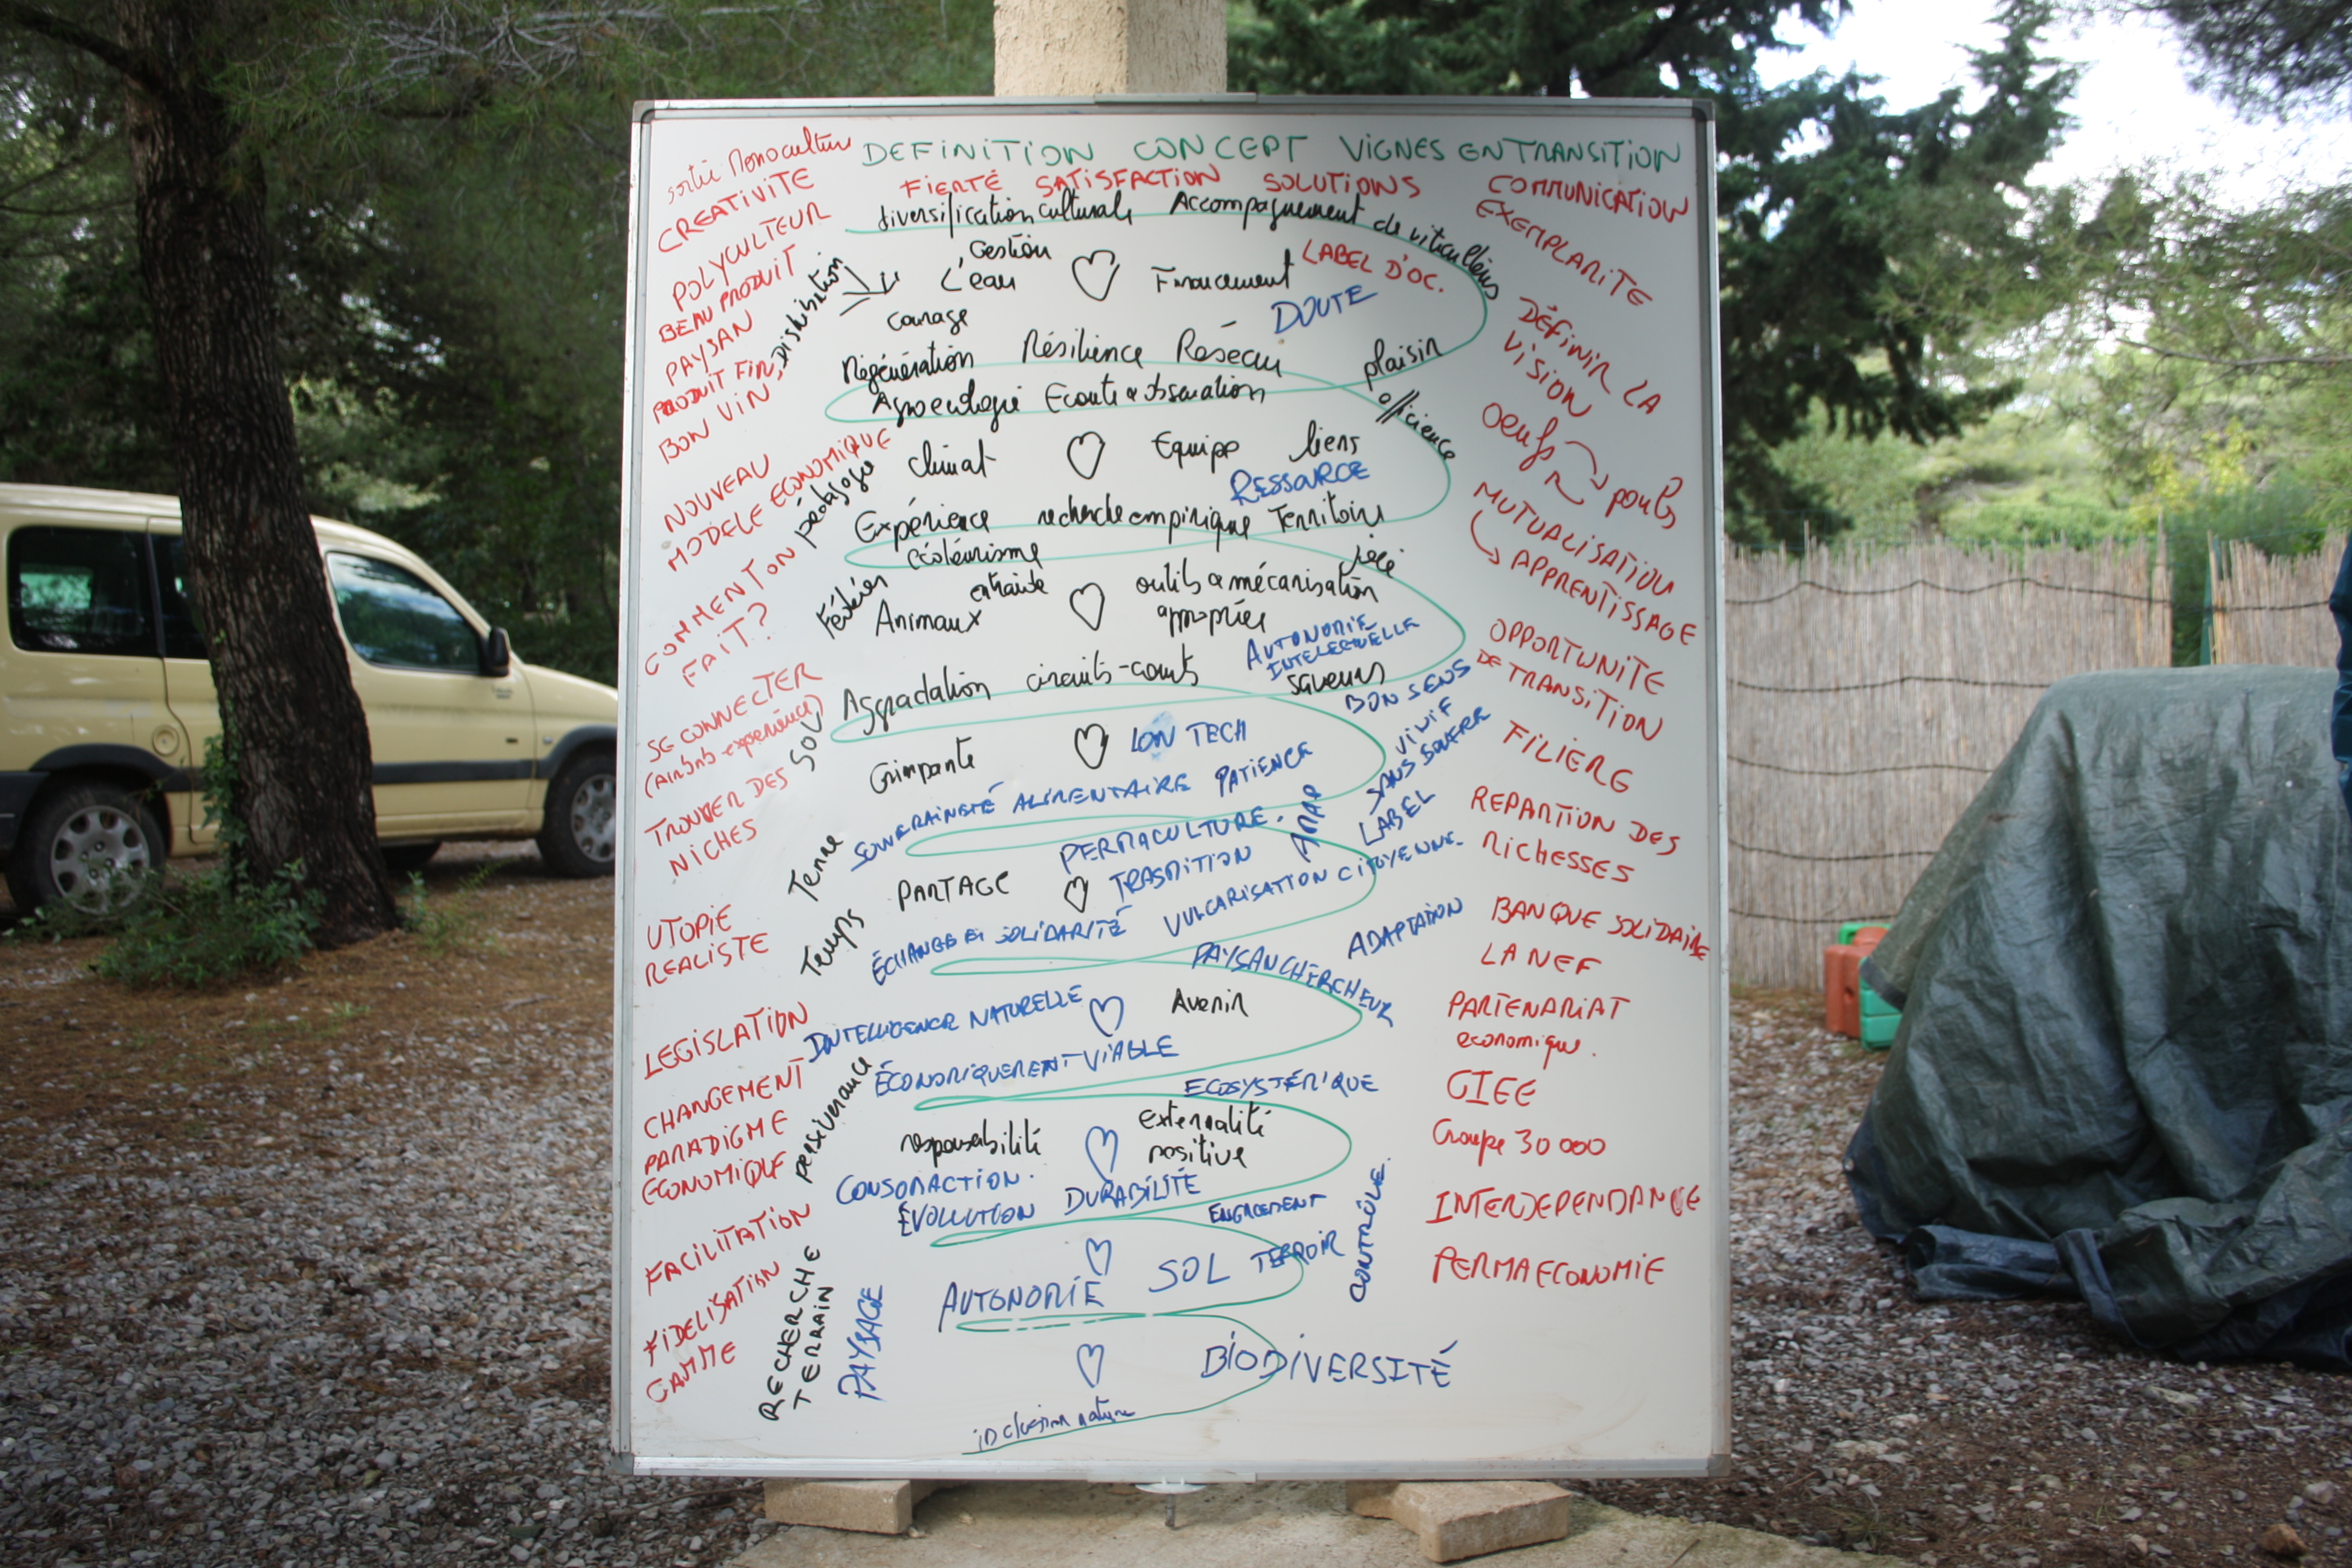 DEFINITION CONCEPT VIGNES EN TRANSITION
sortie Monoculture
CREATIVITE
POLYCULTEUR
BEAU PRODUIT
PAYSAN
PRODUIT FINI
BON VIN
Distribution
NOUVEAU
MODELE ECONOMIQUE
pédagogie
COMMENT ON
FAIT?
SE CONNECTER
(Airbnb experience)
SOL
TROUVER DES
NICHES
Terre
Temps
UTOPIE
REALISTE
LEGISLATION
CHANGEMENT
PARADIGME
ECONOMIQUE
perseverance
FACILITATION
FIDELISATION
GAMME
RECHERCHE
TERRAIN
PAYSAGE
FIERTÉ SATISFACTION SOLUTIONS
diversification culturale Accompagnement de viticulteurs
Gestion
L'eau
Financement
LABEL D'OC.
DOUTE
courage
Régénération Résilience Réseau
plaisir
Agroecologie Ecoute & observation
efficience
climat Equipe liens
RESSOURCE
Expérience recherche empirique Territoire
écotourisme
entraide
outils & mécanisation
appropriés
Animaux
AUTONOMIE
INTELECTUELLE
Aggradation circuits-courts
saveurs
BON SENS
VIVIF
SANS SOUFRR
LABEL
Grimpante
LOW TECH
SOUVERAINETÉ ALIMENTAIRE PATIENCE
PERMACULTURE.
AMAP
PARTAGE
TRASMITION
ÉCHANGE ET SOLIDARITÉ
VULGARISATION CITOYENNE.
ADAPTATION
PAYSAN CHERCHEUR
INTELLIGENCE NATURELLE
Avenir
ÉCONOMIQUEMENT VIABLE
ECOSYSTÉMIQUE
responsabilité
Externalité
positive
CONSOMACTION.
ÉVOLUTION DURABILITÉ
ENGAGEMENT
CONTRÔLE.
AUTONOMIE SOL TERROIR
BIODIVERSITÉ
inclusion nature
COMMUNICATION
EXEMPLARITE
DÉFINIR LA
VISION
Oeufs
poules
MUTUALISATION
APPRENTISSAGE
OPPORTUNITE
DE TRANSITION
FILIERE
REPARTION DES
RICHESSES
BANQUE SOLIDAIRE
LA NEF
PARTENARIAT
economique.
GIEE
Groupe 30 000
INTERDEPENDANCE
PERMAECONOMIE